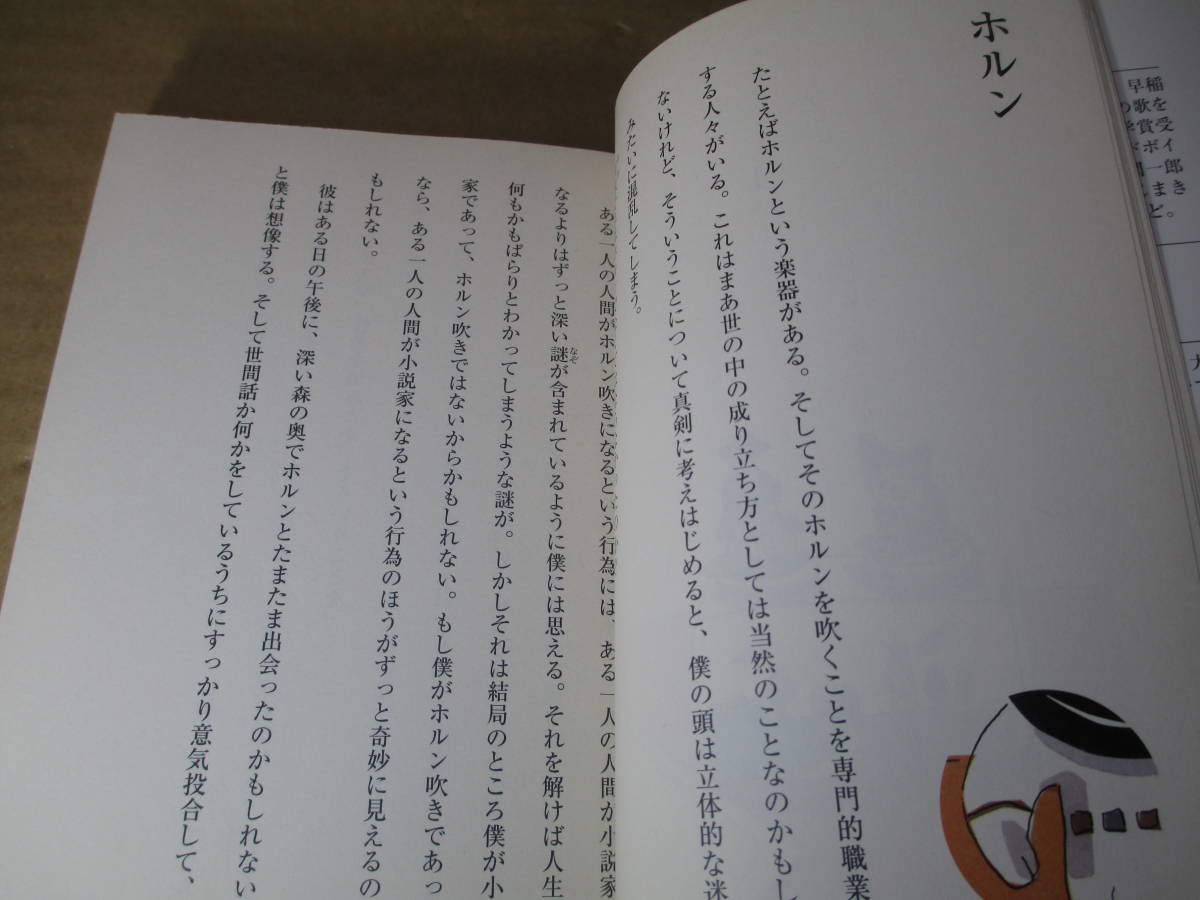 ホルン
たとえばホルンという楽器がある。そしてそのホルンを吹くことを専門的職業
する人々がいる。これはまあ世の中の成り立ち方としては当然のことなのかもし
ないけれど、そういうことについて真剣に考えはじめると、僕の頭は立体的な迷
みたいに混乱してしまう。
ある一人の人間がホルン吹きになるという行為には、ある一人の人間が小説家
なるよりはずっと深い謎が含まれているように僕には思える。それを解けば人生
なぞ
何もかもぱらりとわかってしまうような謎が。しかしそれは結局のところ僕が小
家であって、ホルン吹きではないからかもしれない。もし僕がホルン吹きであっ
なら、ある一人の人間が小説家になるという行為のほうがずっと奇妙に見えるの
もしれない。
彼はある日の午後に、深い森の奥でホルンとたまたま出会ったのかもしれない
と僕は想像する。そして世間話か何かをしているうちにすっかり意気投合して、
早稲
の歌を
学賞受
ドボイ
一郎
しまき
ど。